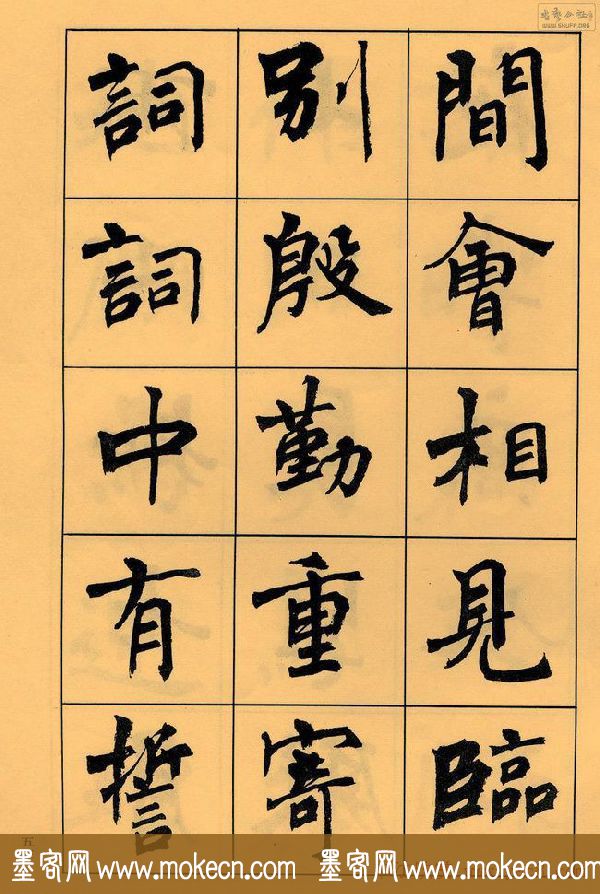 間會相見臨
別殷勤重寄
詞詞中有誓
五
墨客网 www.mokecn.com 墨客网 www.mokecn.com
WWW.SHUFF.ORG